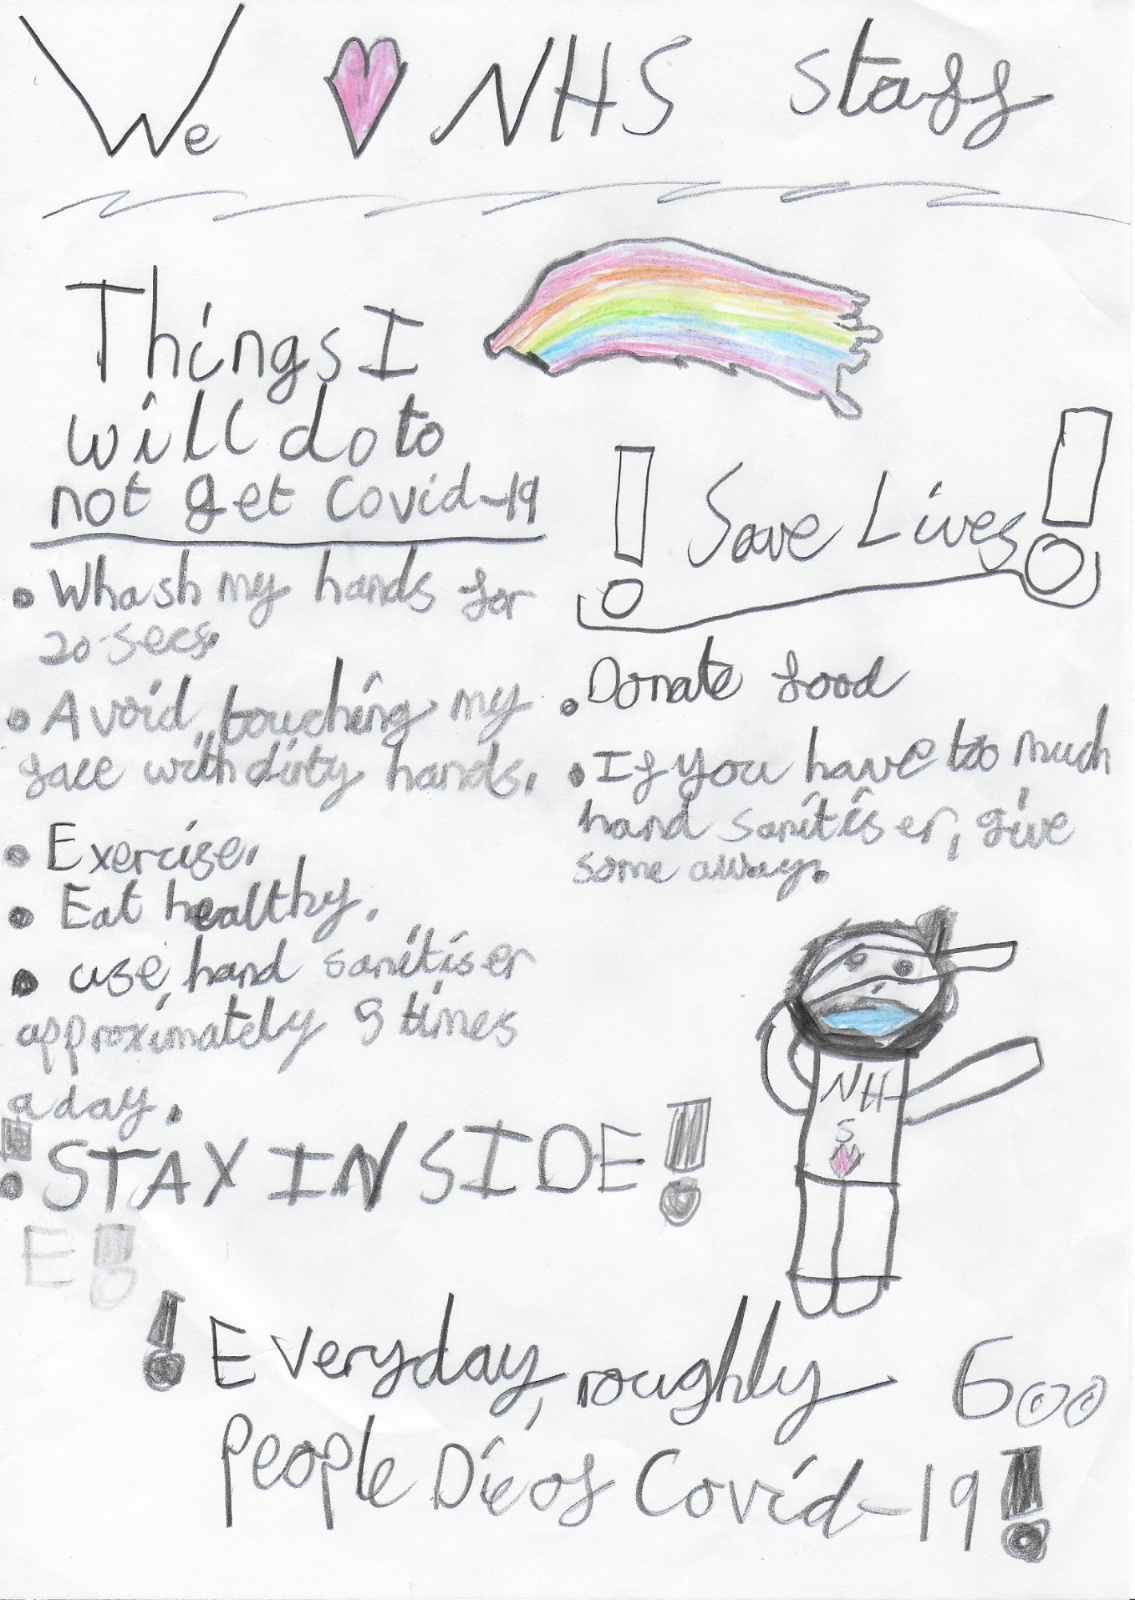 We ♥ NHS staff
Things I
will do to
not get Covid-19
• Whash my hands for
20 secs.
• Avoid touching my
face with dirty hands.
• Exercise.
• Eat healthy.
• use hand sanitiser
approximately 9 times
a day.
• STAY INSIDE!
E!
! Save Lives!
• Donate food
• If you have too much
hand sanitiser, give
some away.
NH
S
! Everyday, roughly 600
People Die of Covid-19!